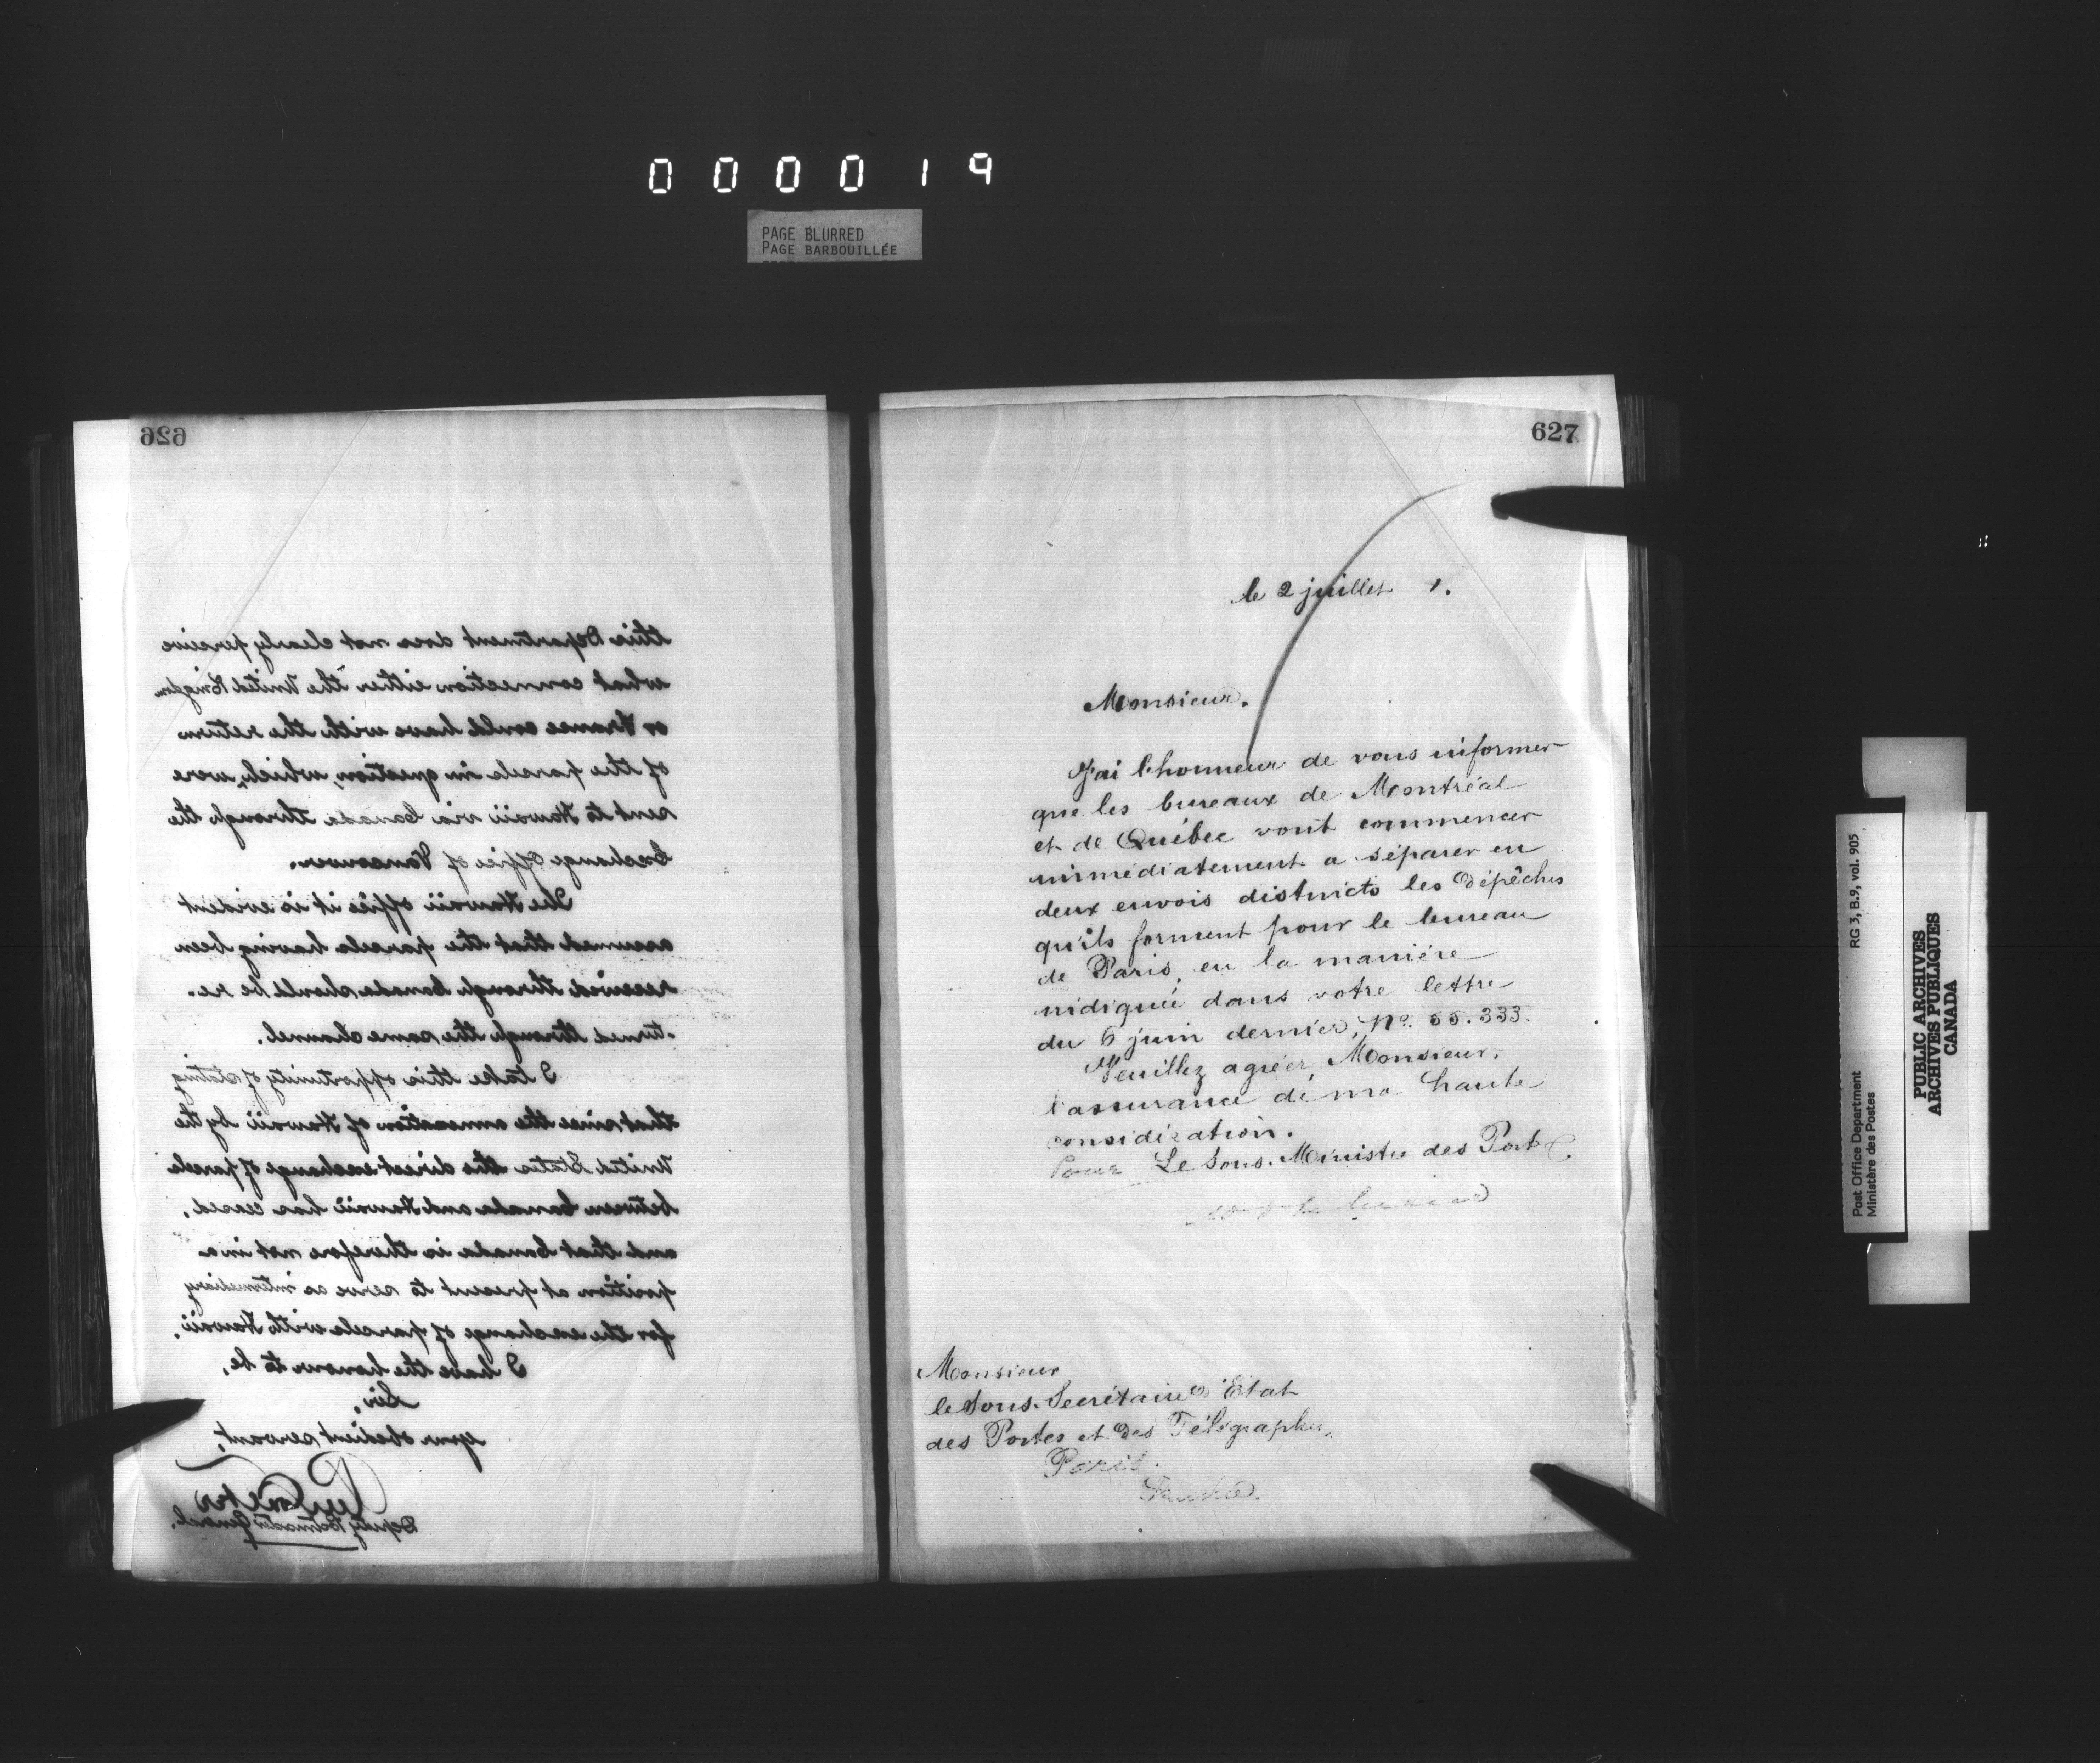 000019
PAGE BLURRED
PAGE BARBOUILLÉE
626
this Department does not clearly perceive
what connection either the United Kingdom
or France could have with the return
of the parcels in question, which, were
sent to Hawaii via Canada through the
Exchange Office of Vancouver.
The Hawaii office it is evident
assumed that the parcels having been
received through Canada should be re-
turned through the same channel.
I take this opportunity of stating
that since the annexation of Hawaii by the
United States the direct exchange of parcels
between Canada and Hawaii has ceased,
and that Canada is therefore not in a
position at present to serve as intermediary
for the exchange of parcels with Hawaii.
I have the honour to be,
Sir,
your obedient servant,
Deputy Postmaster General.
627
le 2 juillet 1.
Monsieur.
J'ai l'honneur de vous informer
que les bureaux de Montréal
et de Québec vont commencer
immédiatement a séparer en
deux envois distincts les dépêches
qu'ils forment pour le bureau
de Paris, en la manière
indiquée dans votre lettre
du 6 juin dernier, No. 55.333.
Veuillez agréer, Monsieur,
l'assurance de ma haute
considération.
Pour Le Sous-Ministre des Postes.
Monsieur
le Sous-Secrétaire d'Etat
des Postes et des Télégraphes,
Paris.
France.
Post Office Department
Ministère des Postes
RG 3, B.9, vol. 905
PUBLIC ARCHIVES
ARCHIVES PUBLIQUES
CANADA